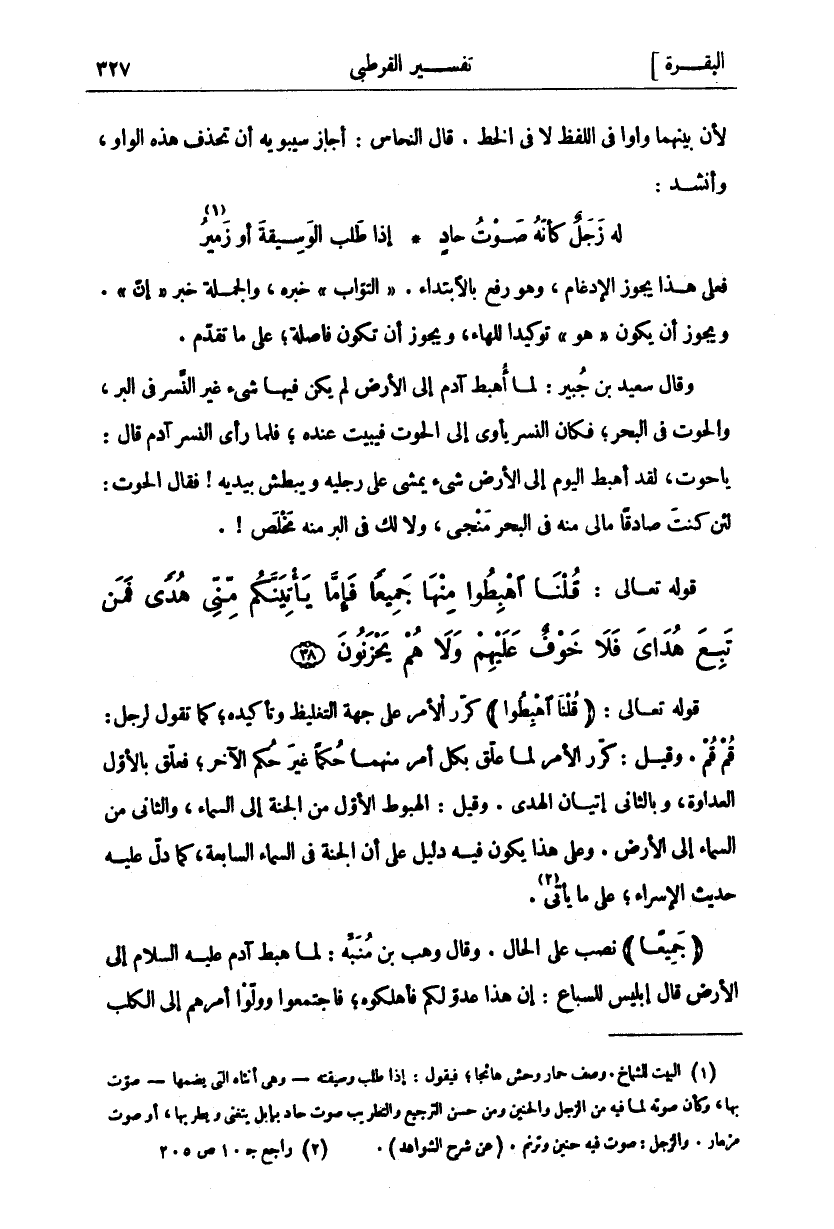 البقرة ] تفسير القرطبى ٣٢٧
لأن بينهما واوا فى اللفظ لا فى الخط . قال النحاس : أجاز سيبويه أن تحذف هذه الواو ،
وأنشد :
له زَجَلٌ كأنّهُ صَوْتُ حادٍ * إذا طَلب الوَسِيقةَ أو زَمِيرُ (١)
فعلى هذا يجوز الإدغام ، وهو رفع بالأبتداء . « التوّاب » خبره ، والجملة خبر « إنّ » .
ويجوز أن يكون « هو » توكيدا للهاء، ويجوز أن تكون فاصلة؛ على ما تقدّم .
وقال سعيد بن جُبير : لما أُهبط آدم إلى الأرض لم يكن فيها شىء غير النَّسر فى البر ،
والحوت فى البحر؛ فكان النسر يأوى إلى الحوت فيبيت عنده ؛ فلما رأى النسر آدم قال :
ياحوت، لقد أهبط اليوم إلى الأرض شىء يمشى على رجليه ويبطش بيديه ! فقال الحوت :
لئن كنتَ صادقًا مالى منه فى البحر مَنْجى ، ولا لك فى البر منه مَخْلَص ! .
قوله تعالى : قُلْنَا ٱهْبِطُوا مِنْهَا جَمِيعًا فَإِمَّا يَأْتِيَنَّكُم مِّنِّى هُدًى فَمَن
تَبِعَ هُدَاىَ فَلَا خَوْفٌ عَلَيْهِمْ وَلَا هُمْ يَحْزَنُونَ ﴿٣٨﴾
قوله تعالى : ﴿ قُلْنَا ٱهْبِطُوا ﴾ كرّر الأمر على جهة التغليظ وتأكيده؛ كما تقول لرجل :
قُمْ قُمْ . وقيل : كرّر الأمر لما علّق بكل أمر منهما حُكمًا غيرَ حُكم الآخر ؛ فعلّق بالأوّل
العداوة، وبالثانى إتيان الهدى . وقيل : الهبوط الأوّل من الجنة إلى السماء ، والثانى من
السماء إلى الأرض . وعلى هذا يكون فيه دليل على أن الجنة فى السماء السابعة، كما دلّ عليه
حديث الإسراء ؛ على ما يأتى (٢) .
﴿ جَمِيعًا ﴾ نصب على الحال . وقال وهب بن مُنَبِّه : لما هبط آدم عليه السلام إلى
الأرض قال إبليس للسباع : إن هذا عدوّ لكم فأهلكوه؛ فاجتمعوا وولّوْا أمرهم إلى الكلب
(١) البيت للشماخ . وصف حمار وحش هائجا؛ فيقول : إذا طلب وسيقته — وهى أنثاه التى يضمها — صوّت
بها، وكأن صوته لما فيه من الزجل والحنين ومن حسن الترجيع والتطريب صوت حاد بإبل يتغنى ويطربها ، أو صوت
مزمار . والزجل : صوت فيه حنين وترنم . (عن شرح الشواهد) . (٢) راجع جـ ١٠ ص ٢٠٥